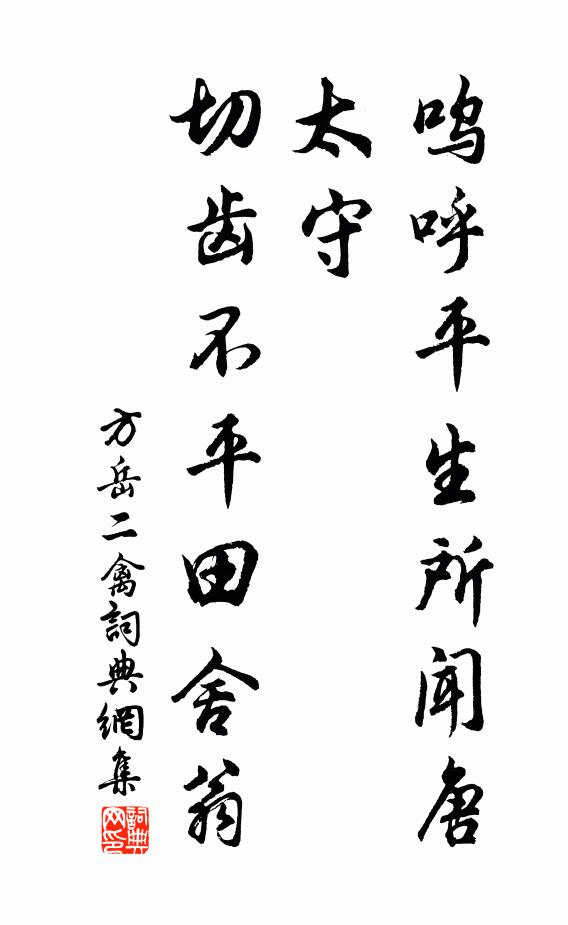 呜呼平生所闻唐
太守
切齿不平田舍翁
方岳二禽詞典網集
詞典网印